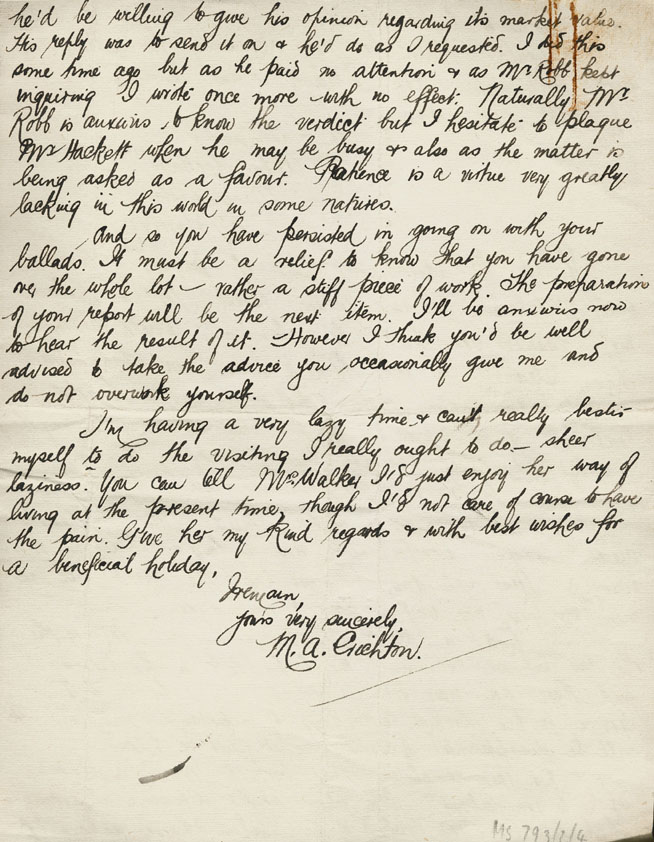 he'd be willing to give his opinion regarding its market value.
His reply was to send it on & he'd do as I requested. I did this
some time ago but as he paid no attention & as Mr Robb kept
inquiring I wrote once more with no effect. Naturally Mr
Robb is anxious to know the verdict but I hesitate to plague
Mr Hackett when he may be busy & also as the matter is
being asked as a favour. Patience is a virtue very greatly
lacking in this world in some natures.
And so you have persisted in going on with your
ballads. It must be a relief to know that you have gone
over the whole lot – rather a stiff piece of work. The preparation
of your report will be the next item. I'll be anxious now
to hear the result of it. However I think you'd be well
advised to take the advice you occasionally give me and
do not overwork yourself.
I'm having a very lazy time & can't really bestir
myself to do the visiting I really ought to do – sheer
laziness. You can tell Mrs Walker I'd just enjoy her way of
living at the present time, though I'd not care of course to have
the pain. Give her my kind regards & with best wishes for
a beneficial holiday,
I remain,
Yours very sincerely,
M. A. Crichton.
MS 793/1/4